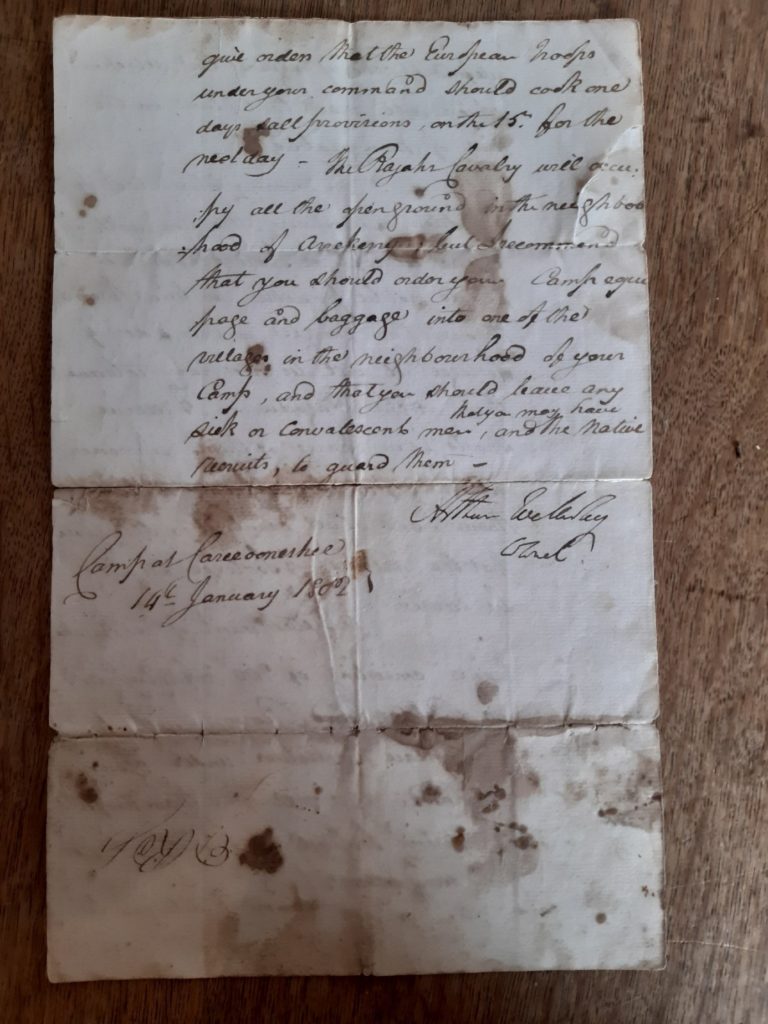 give orders that the European troops
under your command should cook one
days salt provisions, on the 15th. for the
next day – The Rajahs Cavalry will occu:
:py all the open ground in the neighbou
:hood of Arekery; but I recommend
that you should order your Camp equi
page and baggage into one of the
villages in the neighbourhood of your
Camp, and that you should leave any
that you may have
sick or convalescent men, and the Native
recruits, to guard them –
Arthur Wellesley
Colonel.
Camp at
14th January 1802